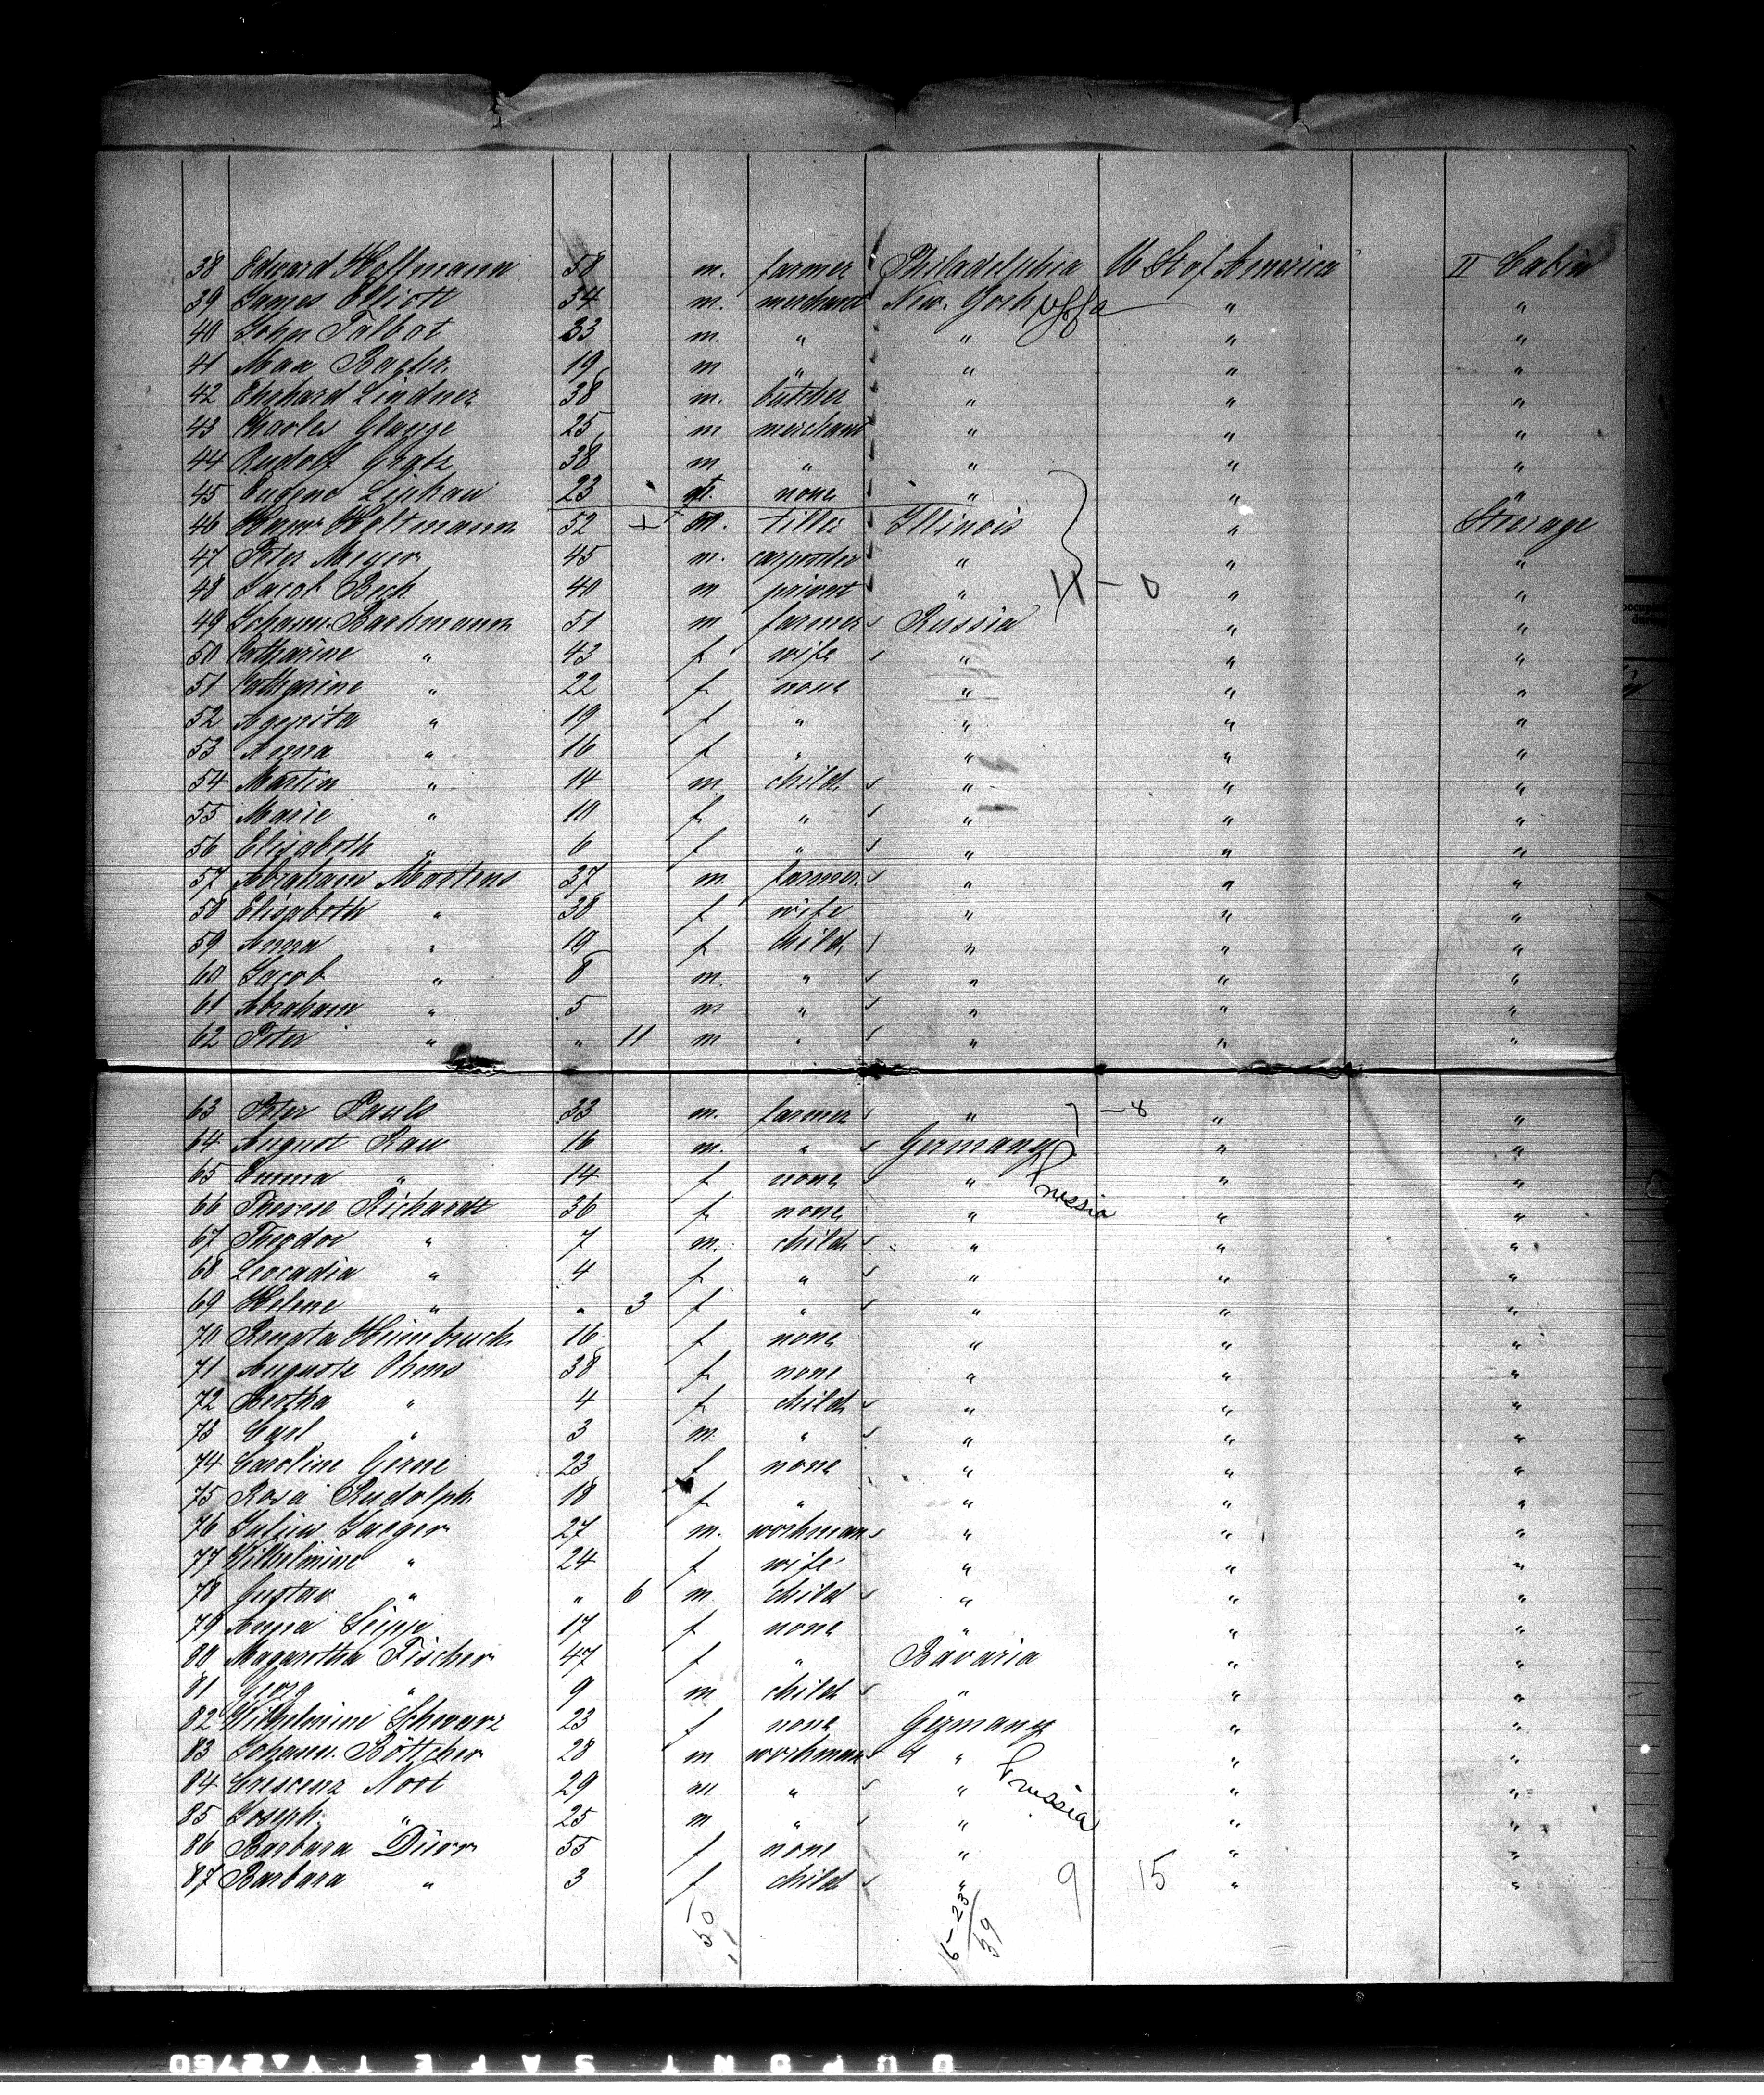 38 Edward Hoffmann 58 m. farmer Philadelphia U St of America II Cabin
39 James Elliott 34 m. merchant New-York " "
40 John Talbot 33 m. " " " "
41 Max 19 m " " " "
42 Ehrhard Lindner 38 m. butcher " " "
43 Charles 25 m merchant " " "
44 Rudolf Gratz 38 m " " " "
45 Eugene 23 none " " "
46 52 m. tiller Illinois " Steerage
47 Peter Meyer 45 m. carpenter " " "
48 Jacob Bech 40 m privat " 11 - 0 " "
49 Johann Barkmann 51 m farmer Russia " "
50 Catharine " 43 f wife " " "
51 Catharine " 22 f none " " "
52 Aganita " 19 f " " " "
53 Anna " 16 f " " " "
54 Martin " 14 m child " " "
55 Marie " 10 f " " " "
56 Elisabeth " 6 f " " " "
57 Abraham Martens 37 m. farmer " " "
58 Elisabeth " 38 f wife " " "
59 Anna " 10 f child " " "
60 Jacob " 8 m. " " " "
61 Abraham " 5 m " " " "
62 Peter " " 11 m " " " "
63 Peter Pauls 33 m. farmer " - 8 " "
64 August Rau 16 m. " Germany " "
65 Emma " 14 f none " Prussia " "
66 Therese Richards 36 f none " " "
67 Theodor " 7 m. child " " "
68 Leocadia " 4 f " " " "
69 Helene " " 3 f " " " "
70 Renata Heimbruch 16 f none " " "
71 Auguste Ohms 38 f none " " "
72 Bertha " 4 f child " " "
73 Carl " 3 m " " " "
74 Caroline 23 f none " " "
75 Rosa Rudolph 18 f " " " "
76 Julius Jaeger 27 m. workman " " "
77 Wilhelmine " 24 f wife " " "
78 Gustav " " 6 m child " " "
79 Anna 17 f none " " "
80 Magaretha Fischer 47 f " Bavaria " "
81 Georg " 9 m child " " "
82 Wilhelmine Schwarz 23 f none Germany " "
83 Johann Böttcher 28 m workman " " "
84 Crescenz Nort 29 m " " Prussia " "
85 Joseph " 25 m " " " "
86 Barbara Dürr 55 f none " " "
87 Barbara " 3 f child " 9 15 " "
50
11
16-23
39
DUPONT SAFETY